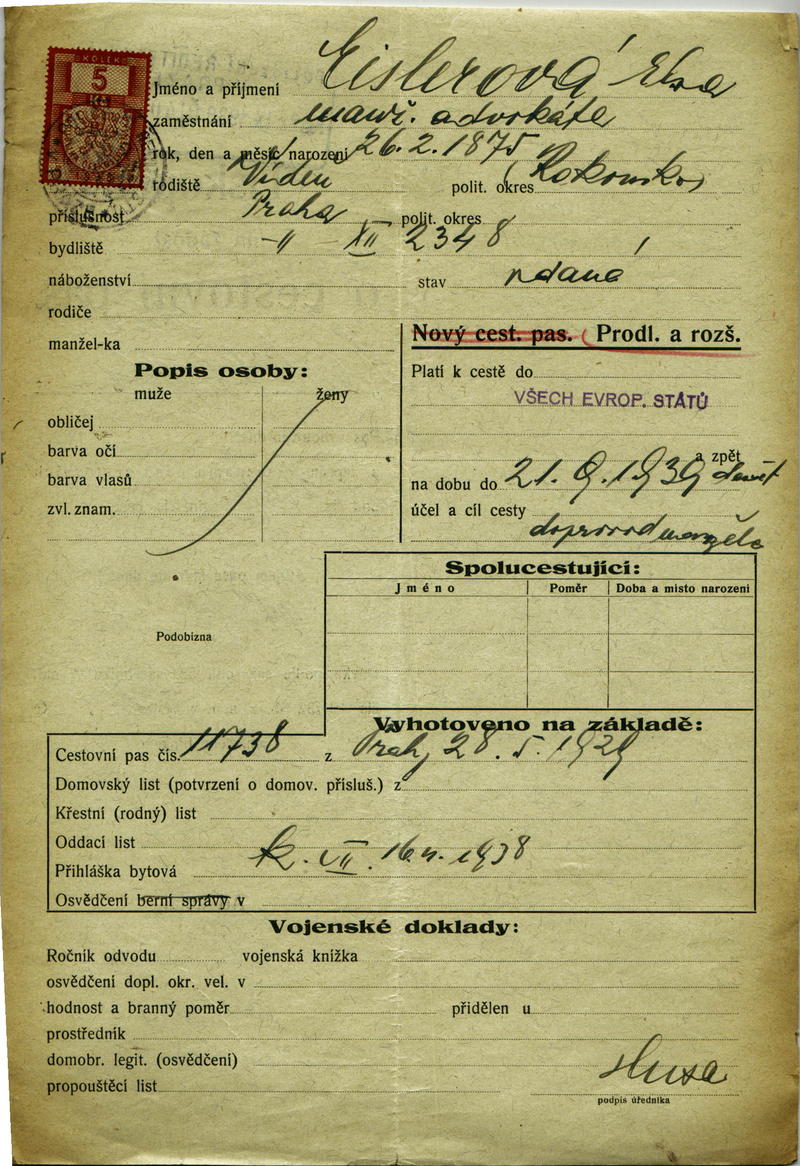 KOLEK
5
Jméno a příjmení Eislerová Elsa
zaměstnání manž. advokáta
rok, den a měsíc narození 26. 2. 1875
rodiště Vídeň polit. okres Rakousko
příslušnost Praha polit. okres
bydliště -"- XII 2348
náboženství stav vdaná
rodiče
manžel-ka
Nový cest. pas. Prodl. a rozš.
Platí k cestě do
VŠECH EVROP. STÁTŮ
a zpět
na dobu do 21. 9. 1939
účel a cíl cesty
doprovod manžela
Popis osoby:
muže ženy
obličej
barva očí
barva vlasů
zvl. znam.
Podobizna
Spolucestující:
Jméno Poměr Doba a místo narození
Vyhotoveno na základě:
Cestovní pas čís. 11738 z Prahy 28. 5. 1929
Domovský list (potvrzení o domov. přísluš.) z
Křestní (rodný) list
Oddací list
Přihláška bytová k. VII. 1938
Osvědčení berní správy v
Vojenské doklady:
Ročník odvodu vojenská knížka
osvědčení dopl. okr. vel. v
hodnost a branný poměr přidělen u
prostředník
domobr. legit. (osvědčení)
propouštěcí list
Husa
podpis úředníka